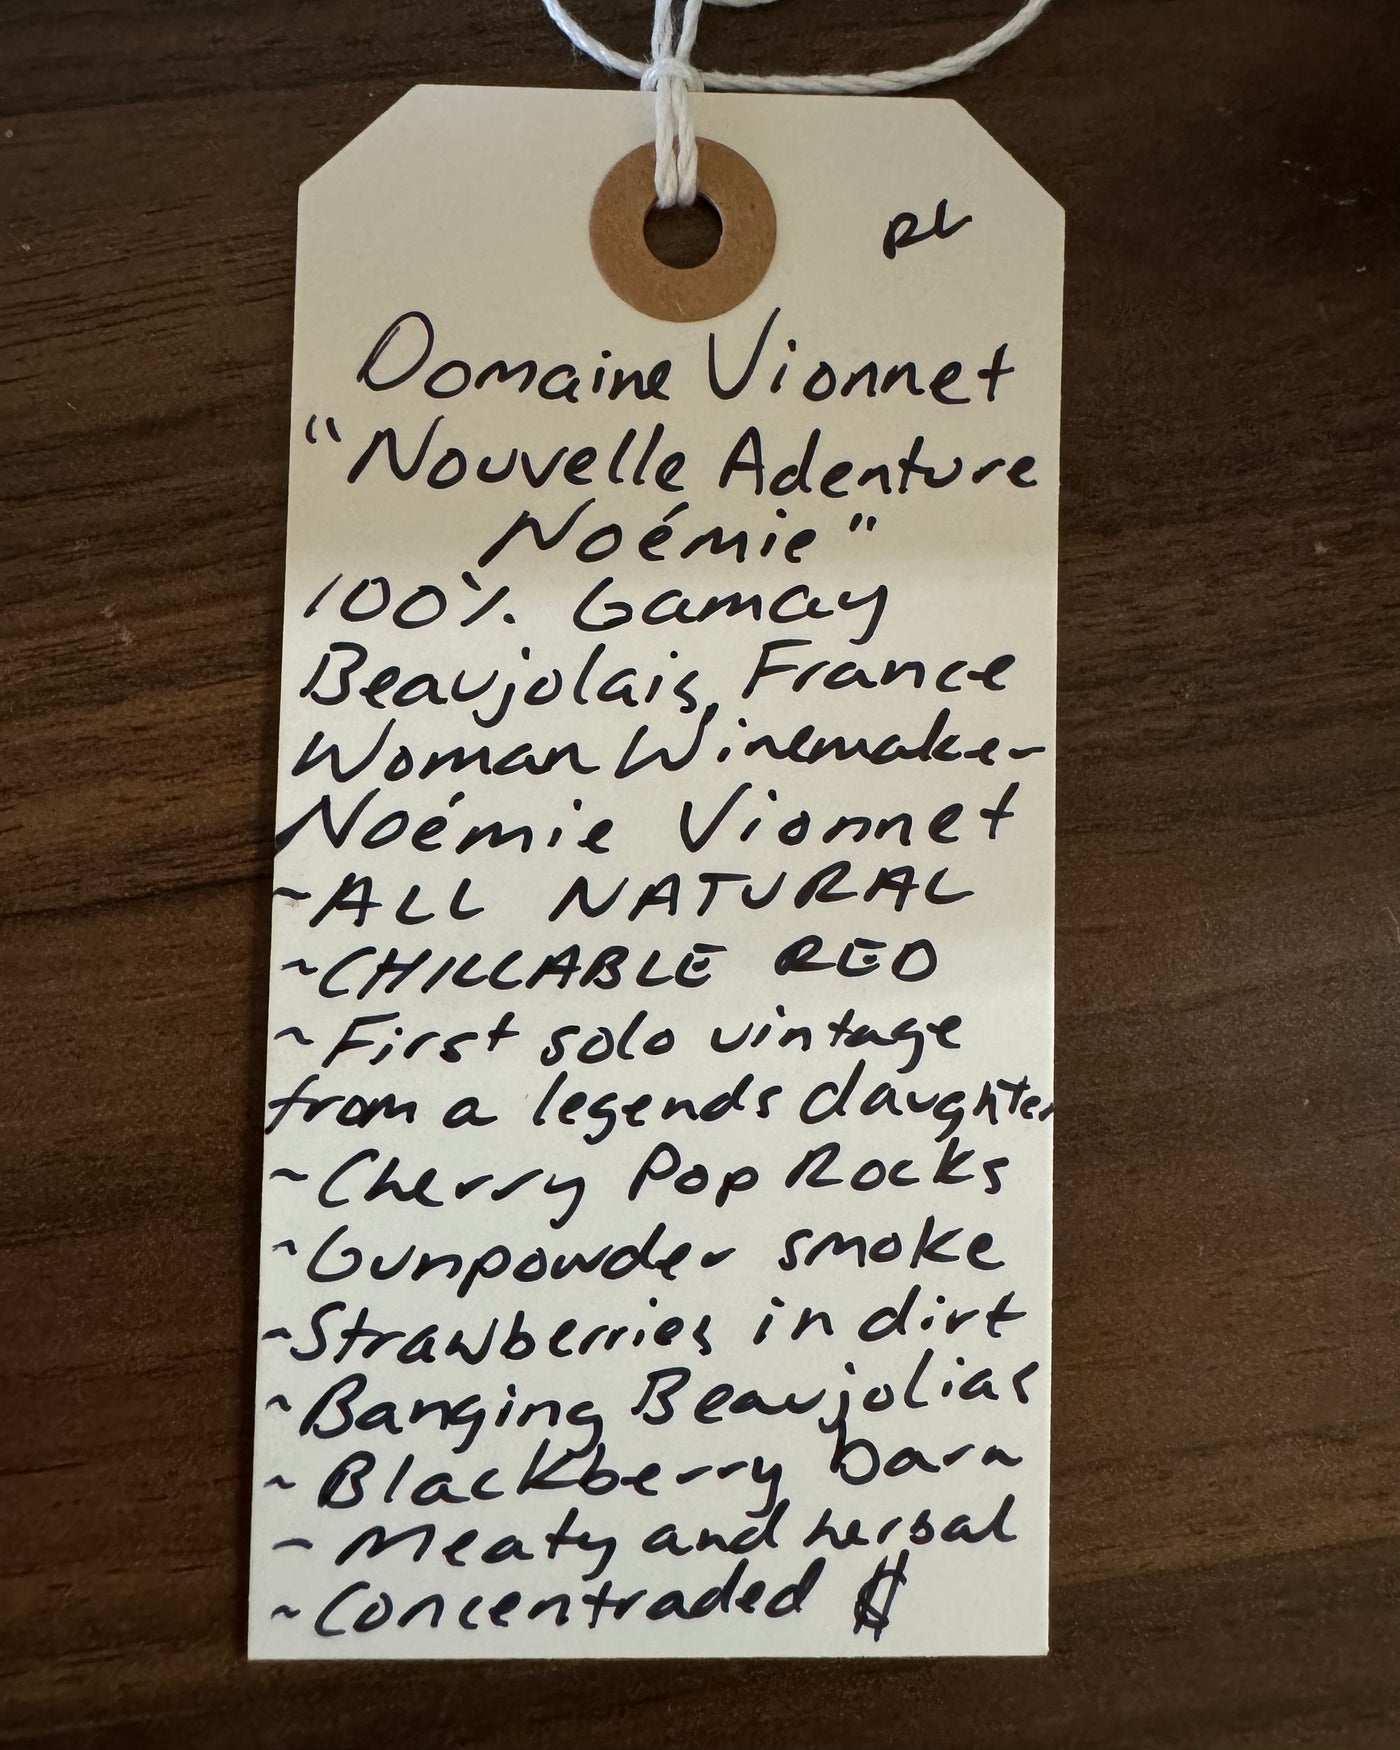 RL
Domaine Vionnet
"Nouvelle Adenture
Noémie"
100% Gamay
Beaujolais, France
Woman Winemaker
Noémie Vionnet
~ALL NATURAL
~CHILLABLE RED
~First solo vintage
from a legends daughter
~Cherry Pop Rocks
~Gunpowder smoke
~Strawberries in dirt
~Banging Beaujolias
~Blackberry barn
~Meaty and herbal
~Concentraded $